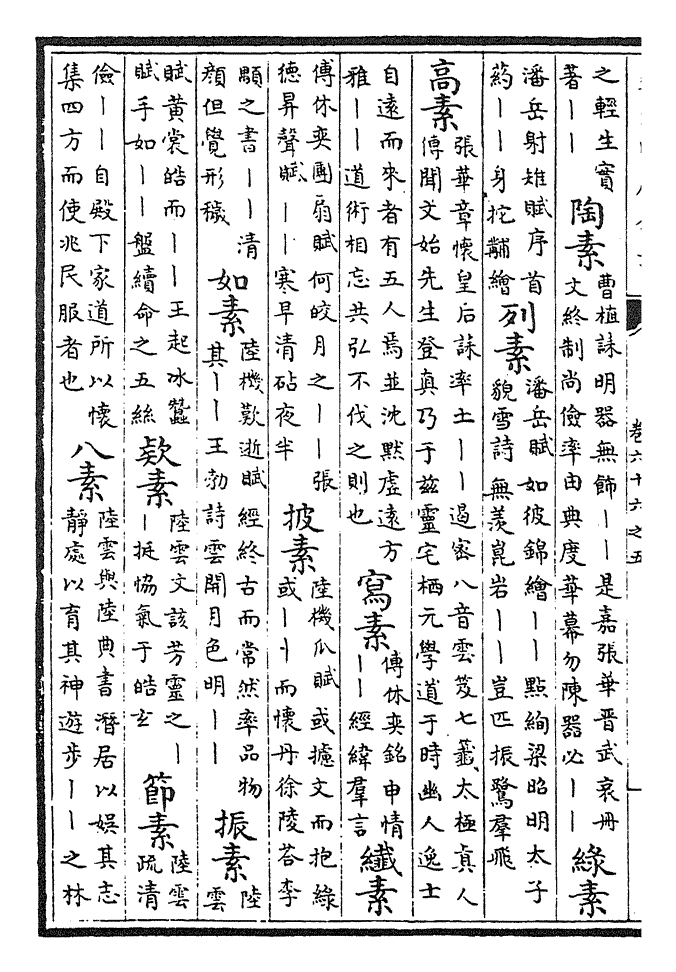 卷六十六之五
之輕生實
著丨丨
陶素
曹植誄明器無飾丨丨是嘉張華晉武哀冊
文終制尚儉率由典度華幕勿陳器必丨丨
綠素
潘岳射雉賦序首
葯丨丨身拕黼繪
列素
潘岳賦如彼錦繪丨丨點絢梁昭明太子
貌雪詩無羨崑岩丨丨豈匹振鷺羣飛
高素
張華章懷皇后誄率土丨丨遏密八音雲笈七籤太極真人
傳聞文始先生登真乃于兹靈宅栖元學道于時幽人逸士
自遠而來者有五人焉並沈默虛遠方
雅丨丨道術相忘共弘不伐之則也
寫素
傅休奕銘申情
丨丨經緯羣言
纖素
傅休奕團扇賦何皎月之丨丨張
德昇聲賦丨丨寒早清砧夜半
披素
陸機瓜賦或攄文而抱綠
或丨丨而懷丹徐陵荅李
顒之書丨丨清
顏但覺形穢
如素
陸機歎逝賦經終古而常然率品物
其丨丨王勃詩雲開月色明丨丨
振素
陸
雲
賦黃裳皓而丨丨王起冰蠶
賦手如丨丨盤續命之五絲
欵素
陸雲文該芳靈之丨
丨挻恊氣于皓玄
節素
陸雲
疏清
儉丨丨自殿下家道所以懷
集四方而使兆民服者也
八素
陸雲與陸典書潛居以娛其志
靜處以育其神遊步丨丨之林